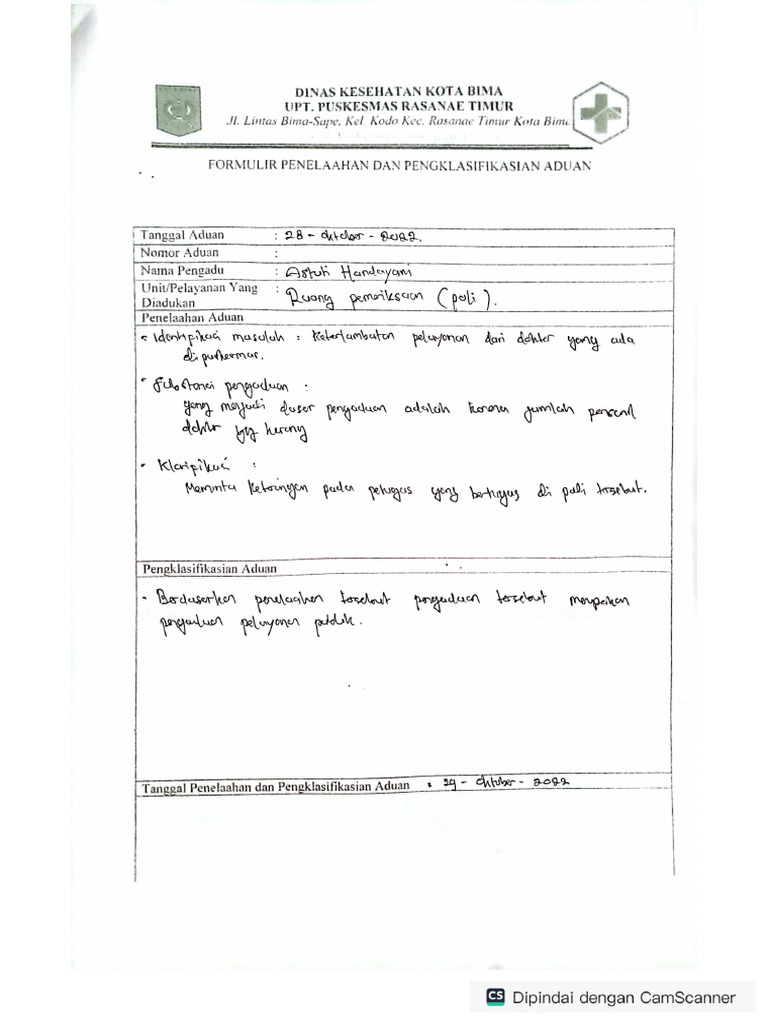 DINAS KESEHATAN KOTA BIMA
UPT. PUSKESMAS RASANAE TIMUR
Jl. Lintas Bima-Sape, Kel. Kodo Kec. Rasanae Timur Kota Bima
FORMULIR PENELAAHAN DAN PENGKLASIFIKASIAN ADUAN
Tanggal Aduan : 28 - Oktober - 2022.
Nomor Aduan :
Nama Pengadu : Astuti Handayani
Unit/Pelayanan Yang Diadukan : Ruang pemeriksaan (poli).
Penelaahan Aduan
- Identipikasi masalah : Keterlambatan pelayanan dari dokter yang ada
di puskesmas.
- Substansi pengaduan :
yang menjadi dasar pengaduan adalah karena jumlah personil
dokter yg kurang
- Klaripikasi :
Meminta keterangan pada petugas yang bertugas di poli tersebut.
Pengklasifikasian Aduan
- Berdasarkan penelaahan tersebut pengaduan tersebut merupakan
pengaduan pelayanan publik.
Tanggal Penelaahan dan Pengklasifikasian Aduan : 29 - Oktober - 2022
CS Dipindai dengan CamScanner